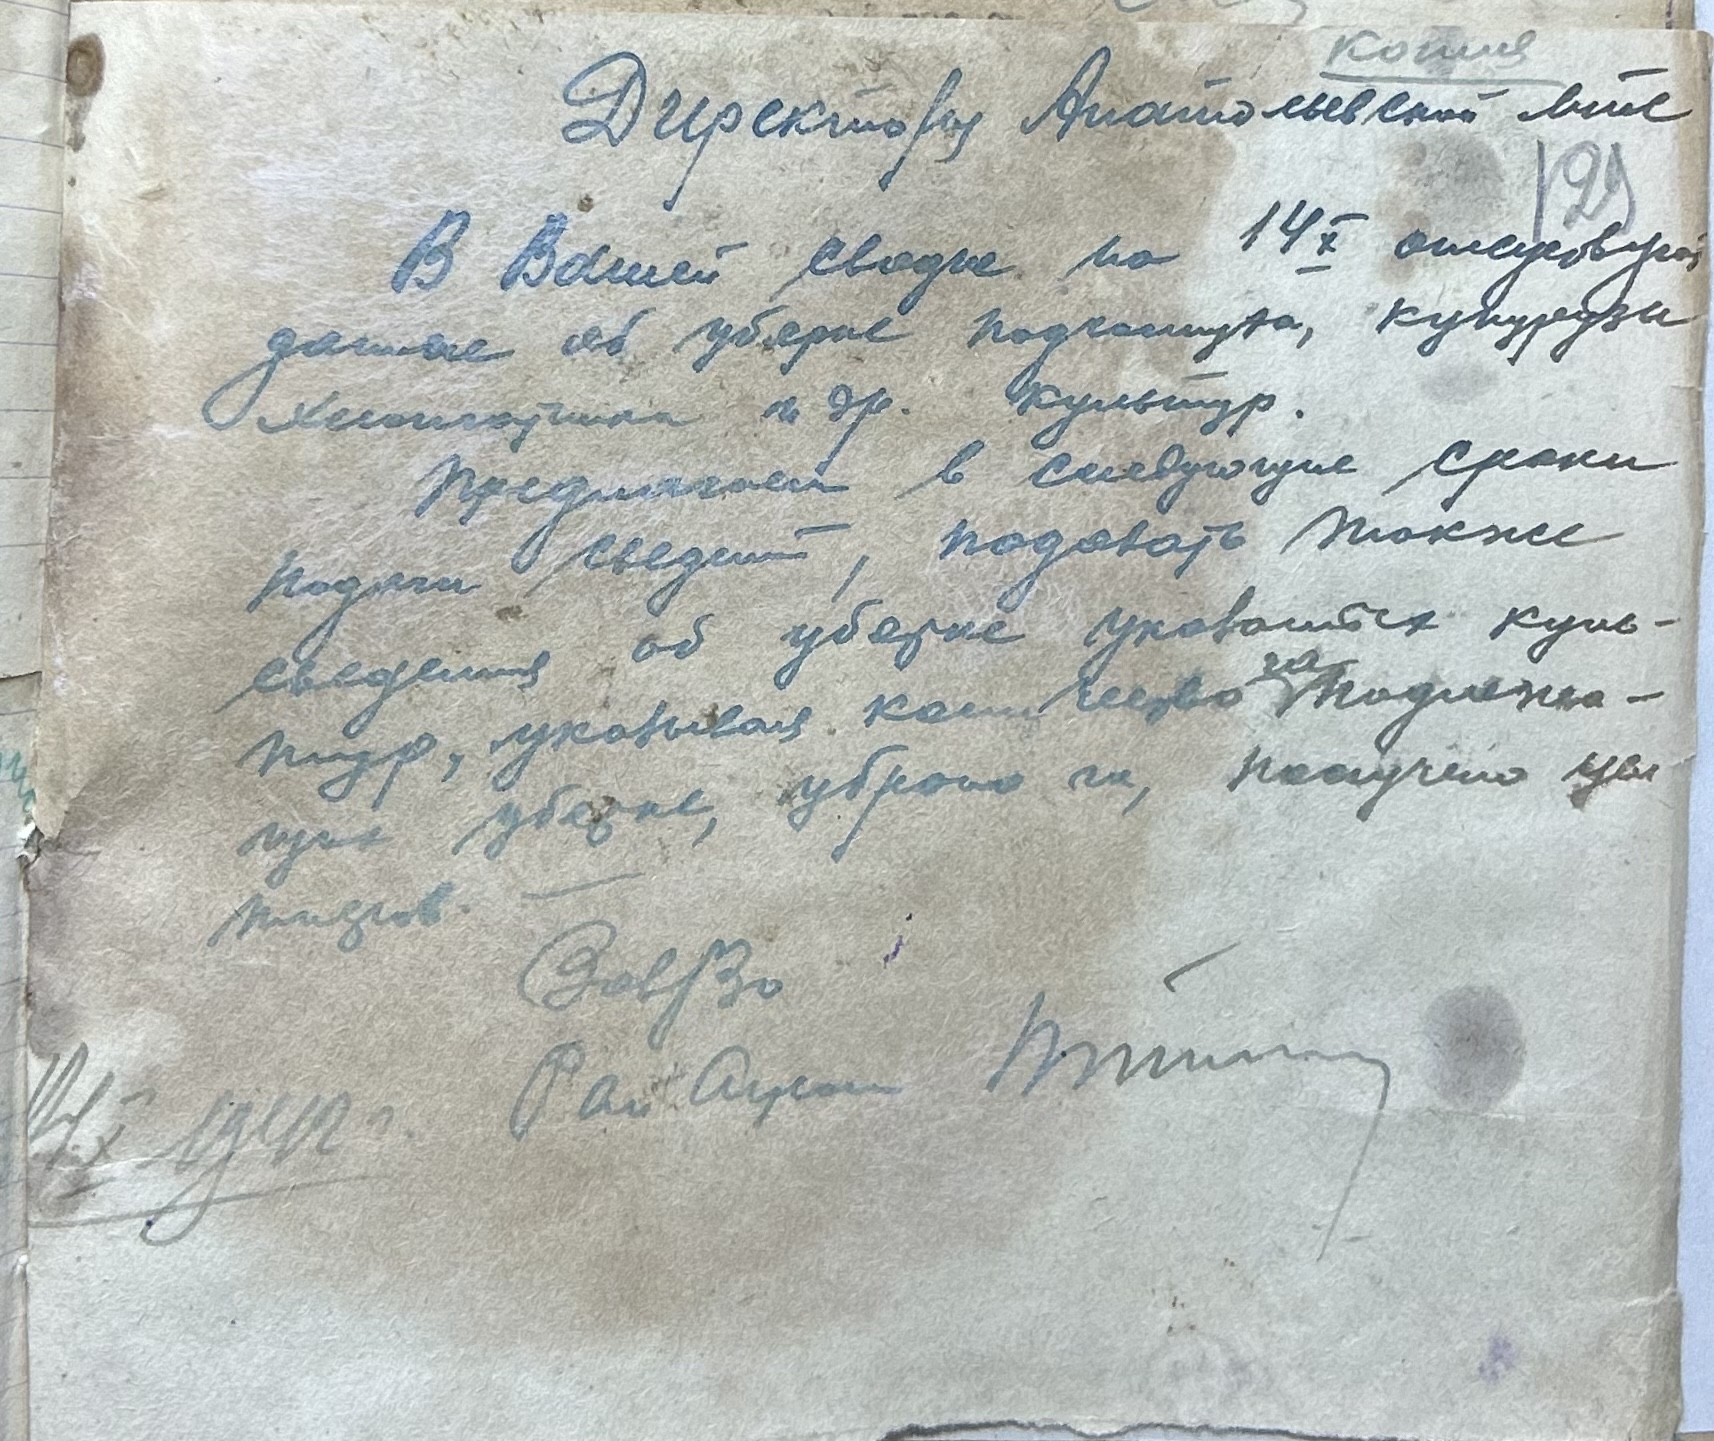 копия
Директору Анатольевской мтс
129
В Вашей сводке на 14/X отсутствуют
данные об уборке подсолнуха, кукурузы
хлопчатника и др. культур.
Предлагаем в следующие сроки
подачи сведений, подавать также
сведения об уборке указанных куль-
тур, указывая количество га подлежа-
щих уборке, убрано га, получено цен
тнеров.
Зав Рзо
Рай
14/X 1942 г.